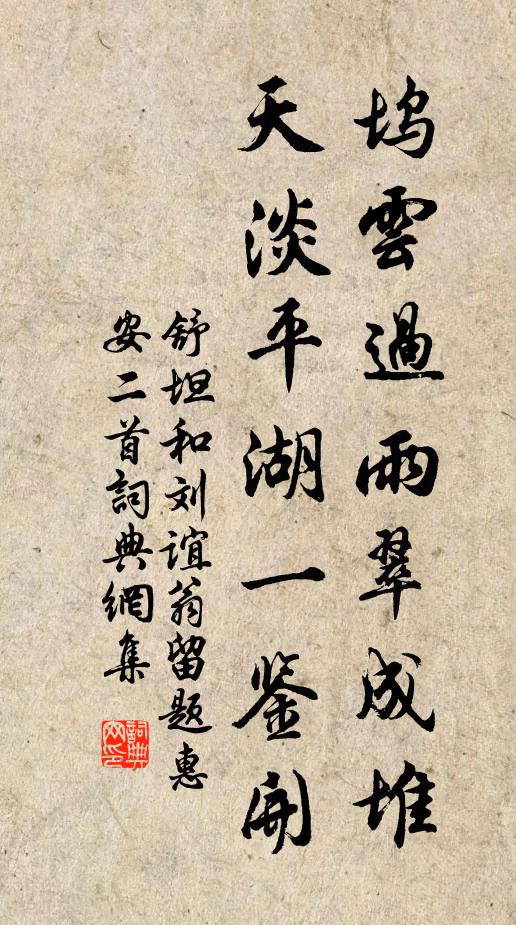 塢雲過雨翠成堆
天淡平湖一鉴開
舒坦和刘谊翁留题惠
安二首詞典網集
詞典